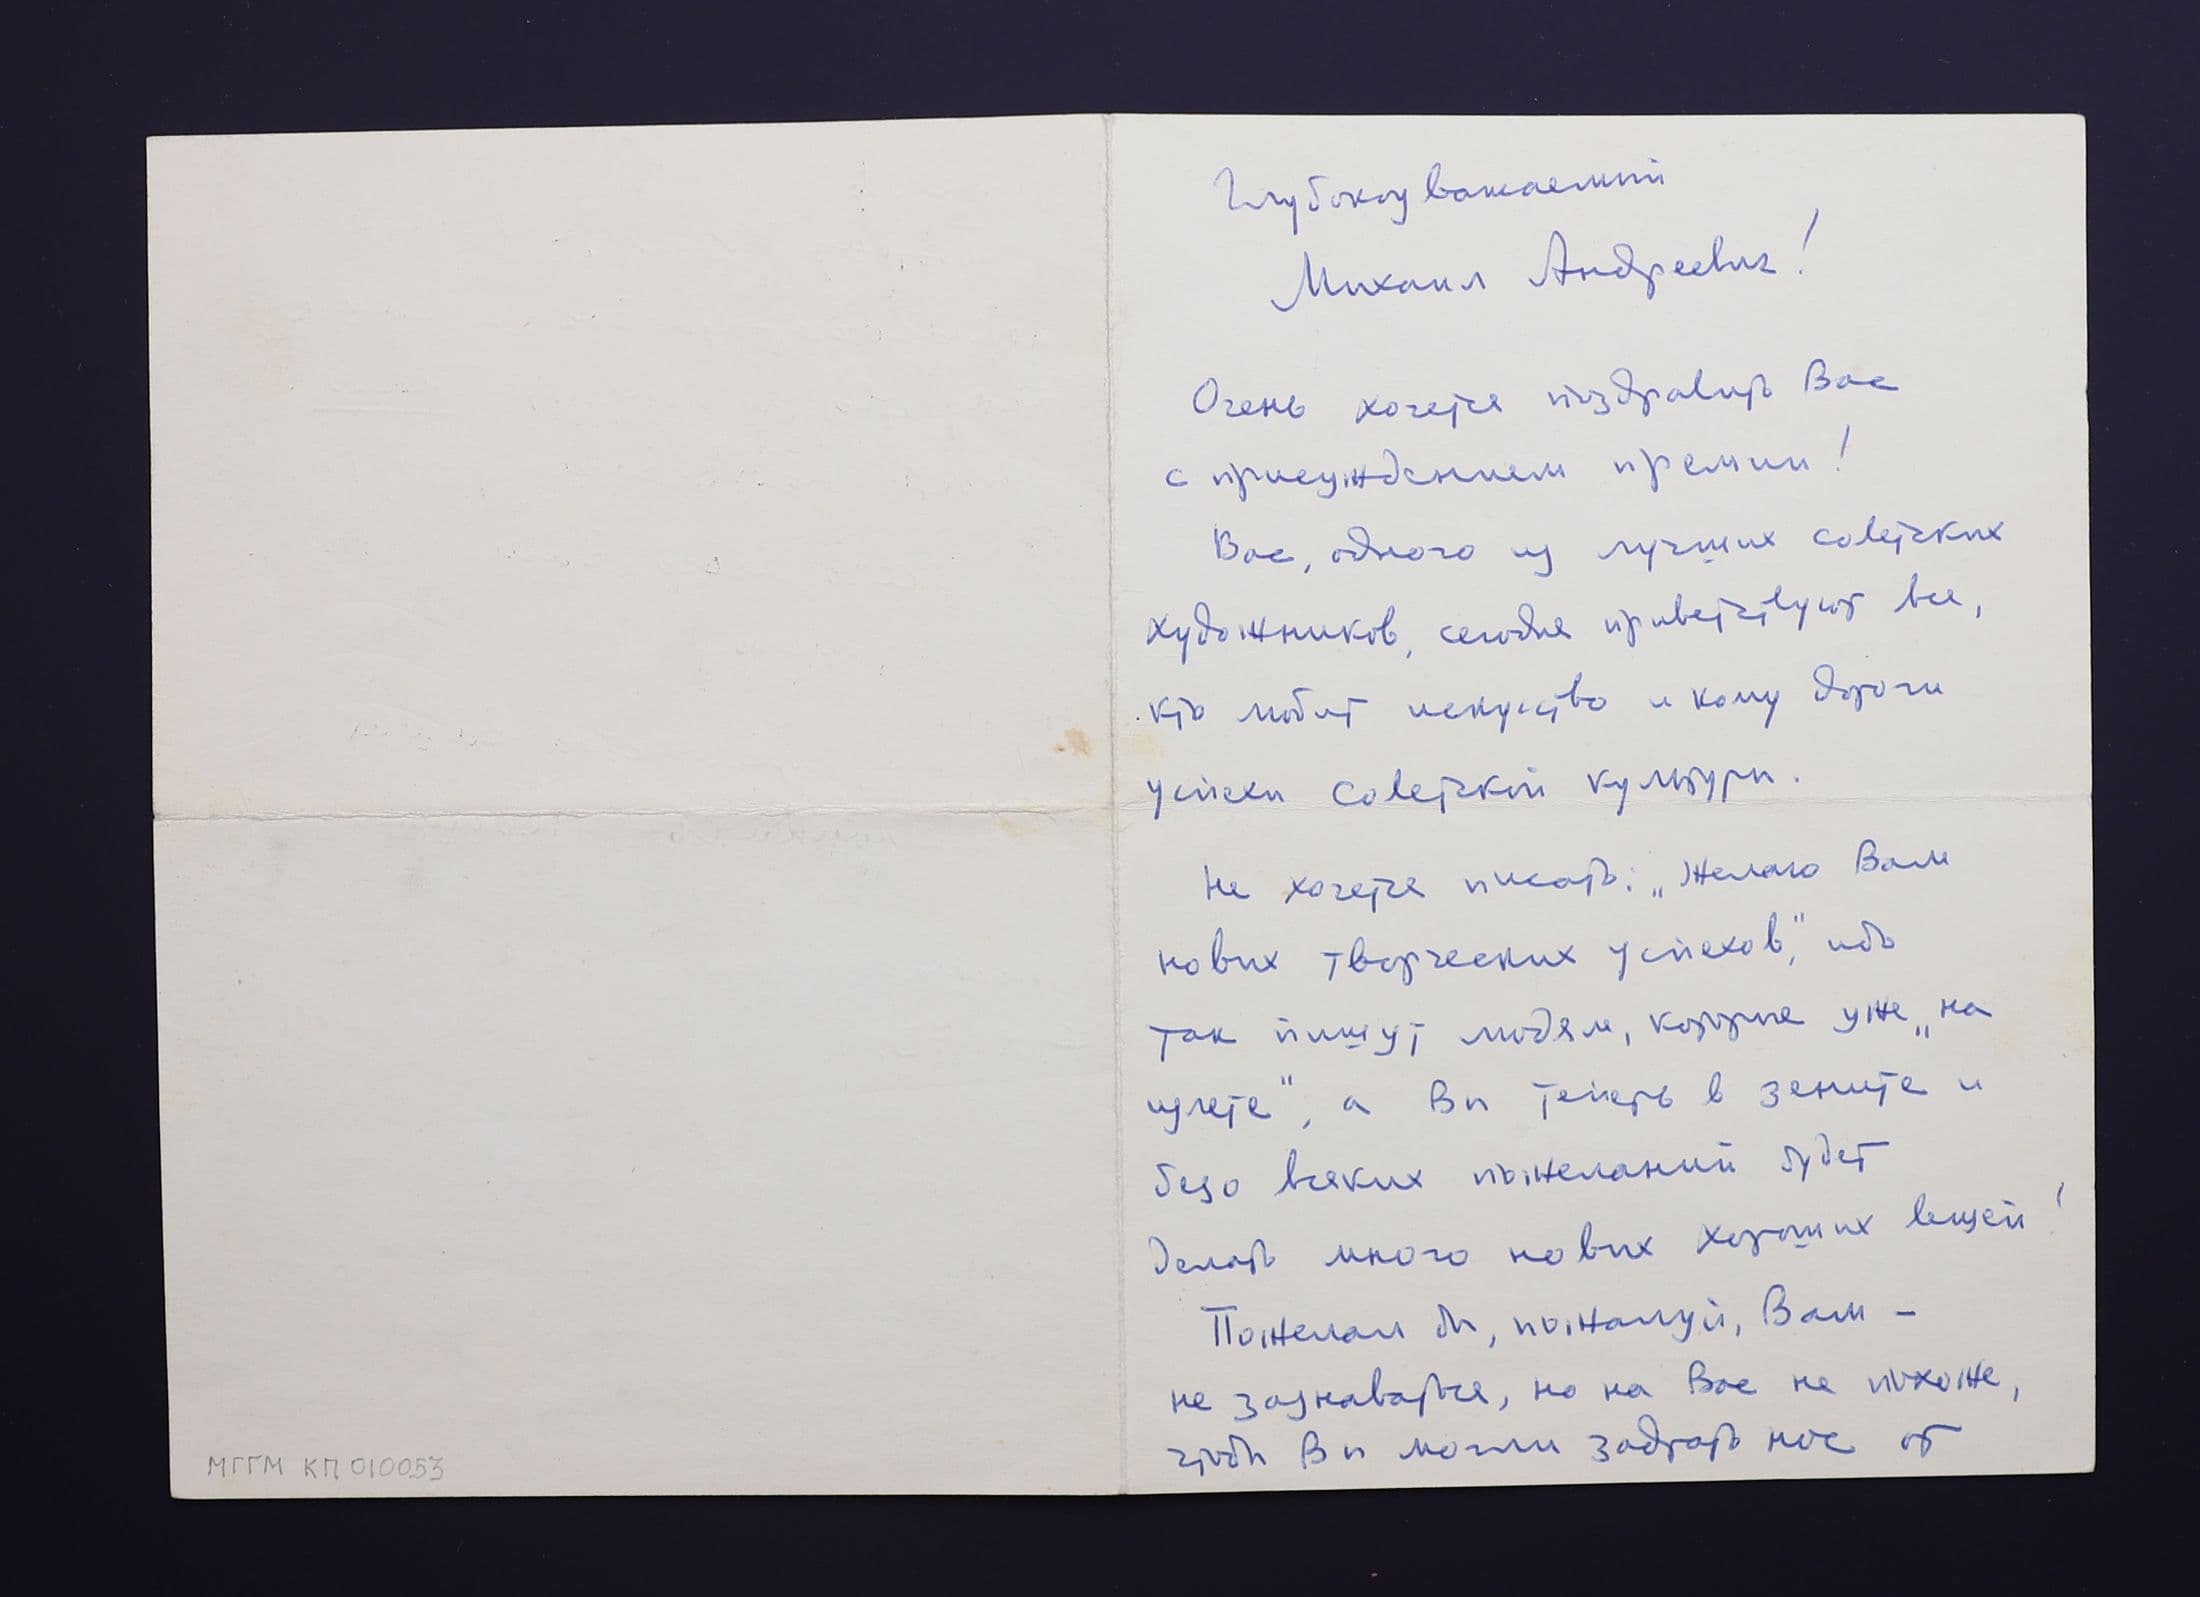 Глубокоуважаемый
Михаил Андреевич!
Очень хочется поздравить Вас
с присуждением премии!
Вас, одного из лучших советских
художников, сегодня приветствуют все,
кто любит искусство и кому дороги
успехи советской культуры.
Не хочется писать: „Желаю Вам
новых творческих успехов", ибо
так пишут людям, которые уже „на
излете", а Вы теперь в зените и
безо всяких пожеланий будет
делать много новых хороших вещей!
Пожелал бы, пожалуй, Вам –
не зазнаваться, но на Вас не похоже,
чтобы Вы могли задрать нос от
МГГМ КП 010053